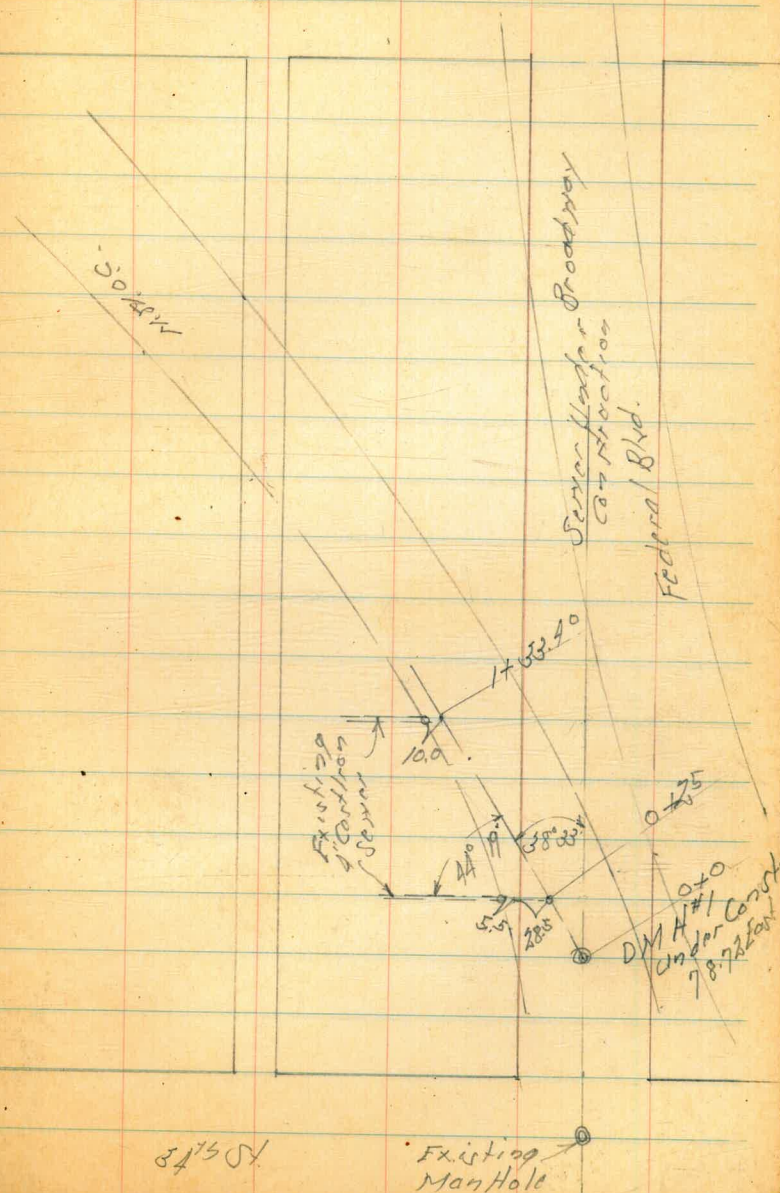 Sewer Under Broadway
Construction
Federal Blvd.
1+33.40
10.0
Existing
6" Dewatering
Sewer
44°
38°
33.4
0+25
5.5
28.5
0+0
D M H #1
Under Const
78.73 East
34th St
Existing
Man Hole